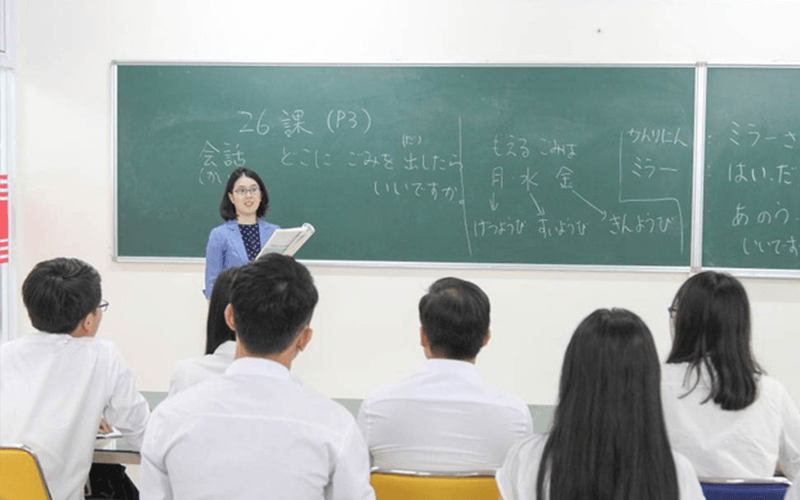 26 課 (P3)
会話 どこに ごみを 出したら
いいですか。
もえる ごみは
月 水 金
げつようび すいようび きんようび
かんりにん
ミラー
ミラーさ
はい.だ
あのう.
いいです